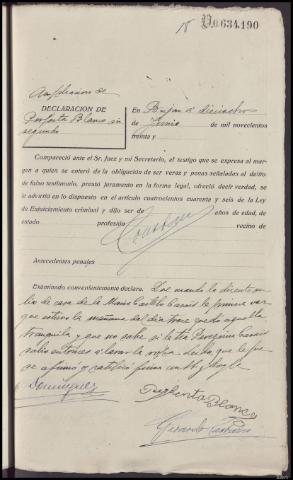 18 V0.634.190
Ampliacion de
DECLARACION DE
Perfecta Blanco sin
segundo
En Bujan a dieciocho
de Junio de mil novecientos
treinta y
Compareció ante el Sr. Juez y mi Secretario, el testigo que se expresa al mar-
gen a quien se enteró de la obligación de ser veraz y penas señaladas al delito
de falso testimonio, prestó juramento en la forma legal, ofreció decir verdad, se
le advirtió en lo dispuesto en el artículo cuatrocientos cuarenta y seis de la Ley
de Enjuiciamiento criminal y dijo ser de años de edad, de
estado profesión vecino de
Antecedentes penales
Examinado convenientemente declara: Que cuando la
de casa de la Maria la primera vez
que estuvo la mañana del dia trece quedó aquella
tranquila y que no sabe si la tia Peregrina
salio entonces a lavar la ropa, dicho que le fue
se afirmó y ratificó firma con
Dominguez
Perfecta Blanco
Gerardo